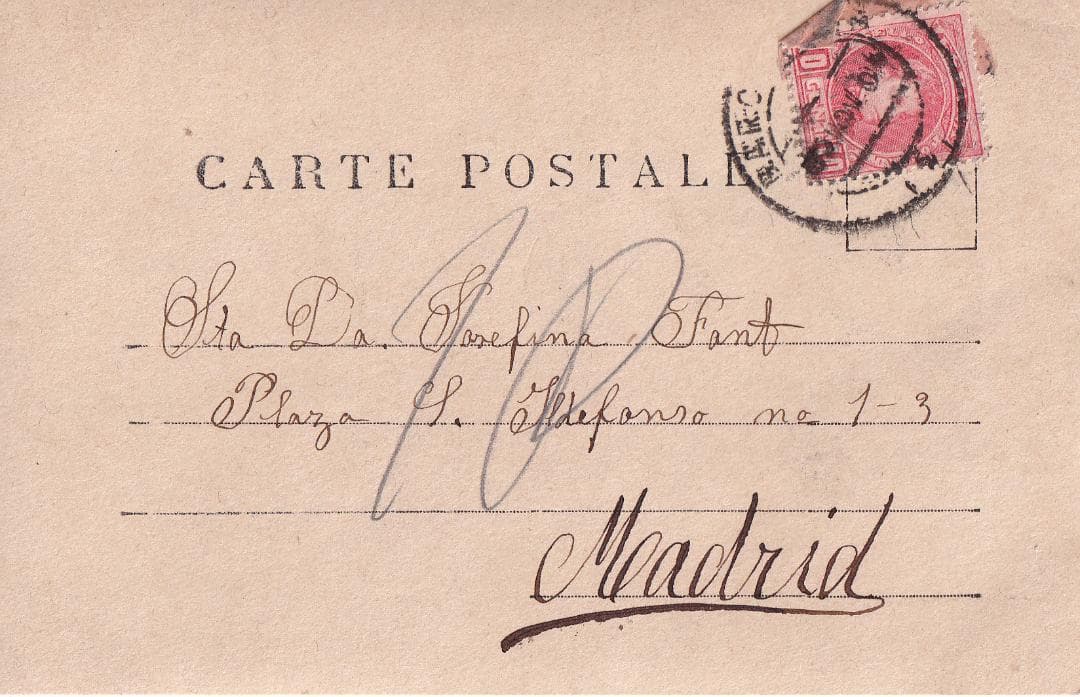 CARTE POSTALE
Sta Da. Josefina Font
Plaza S. Ildefonso no 1-3
Madrid
10